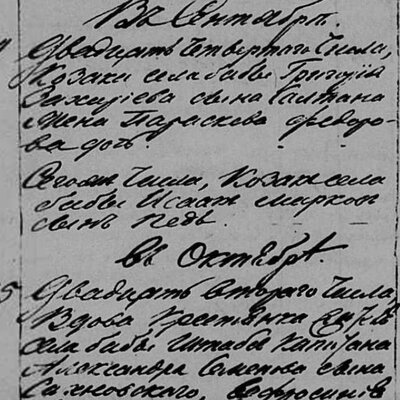 Въ Сентябрѣ.
Двадцать четвертаго числа,
Козака села бабы Григорія
сына
Жена Параскева Федоро-
ва дочь.
Сегожъ числа, Козакъ села
бабы Исаакъ Марковъ
сынъ
въ Октябрѣ.
5 Двадцать втораго числа
Вдова Крестьянка
села бабы Штабсъ Капитана
Александра Семенова сына
Сахновского, Ефросинія